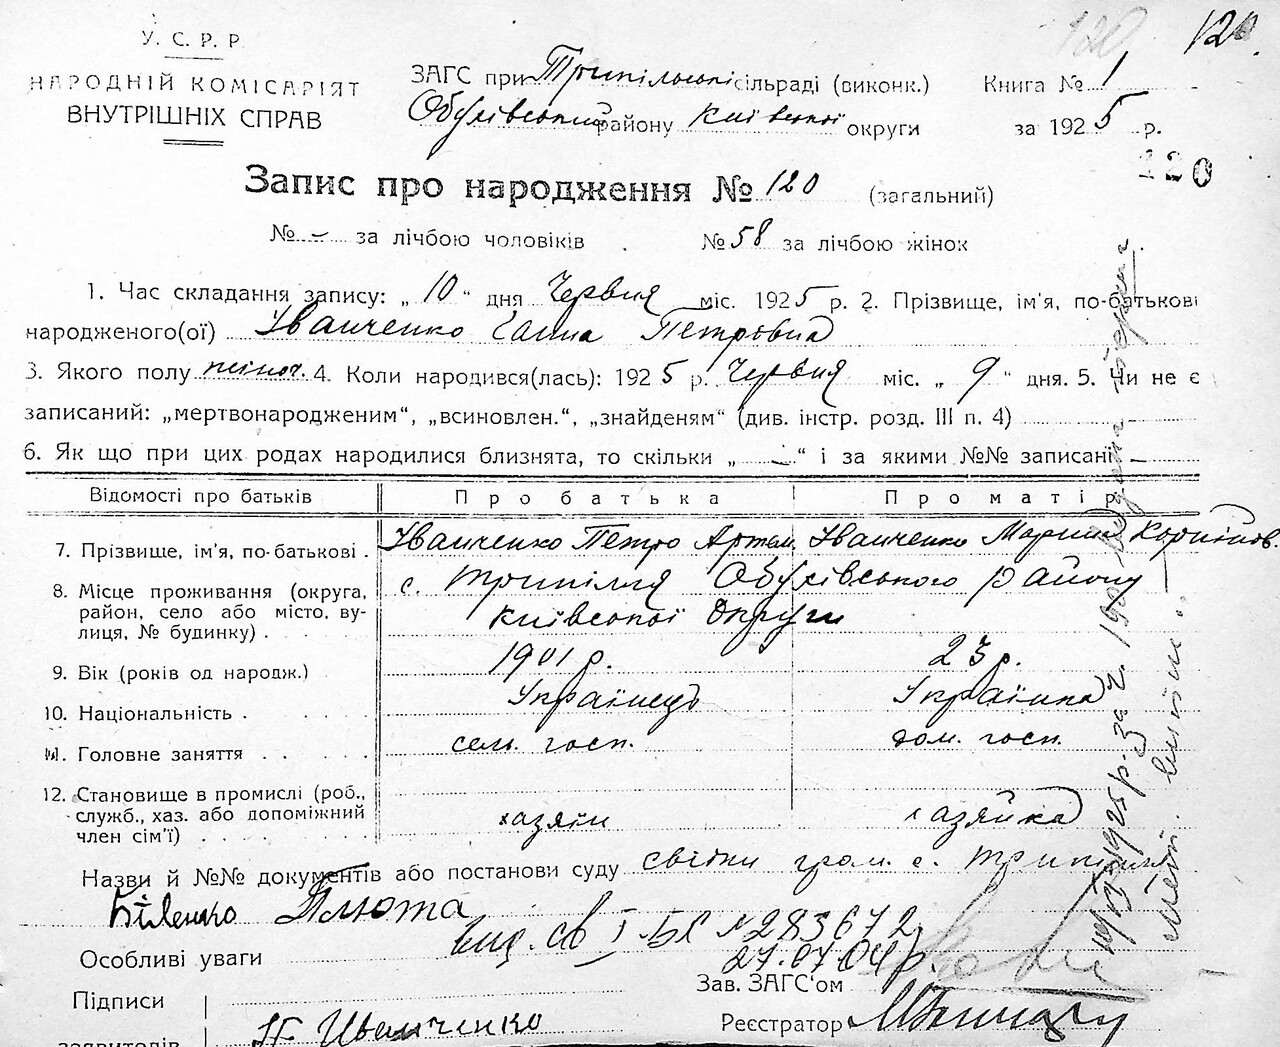 120 120
У. С. Р. Р.
НАРОДНІЙ КОМІСАРІЯТ
ВНУТРІШНІХ СПРАВ
ЗАГС при Трипільській сільраді (виконк.) Книга № 1
Обухівський району Київської округи за 1925 р.
120
Запис про народження № 120 (загальний)
№ – за лічбою чоловіків № 58 за лічбою жінок
1. Час складання запису: „ 10 “ дня Червня міс. 1925 р. 2. Прізвище, ім'я, по-батькові
народженого(ої) Іванченко Ганна Петровна
3. Якого полу жіноч. 4. Коли народився(лась): 1925 р. Червня міс. „ 9 “ дня. 5. Чи не є
записаний: „мертвонародженим“, „всиновлен.“, „знайденям“ (див. інстр. розд. III п. 4)
6. Як що при цих родах народилися близнята, то скільки „ — “ і за якими №№ записані —
Відомості про батьків Про батька Про матір
7. Прізвище, ім'я, по-батькові . Іванченко Петро Артем. Іванченко Мария
8. Місце проживання (округа, район, село або місто, вулиця, № будинку) . с. Трипілля Обухівського району
Київської Округи
9. Вік (років од народж.) 1901 р. 23 р.
10. Національність . Українець Українка
11. Головне заняття . сель. госп. дом. госп.
12. Становище в промислі (роб., служб., хаз. або допоміжний член сім'ї) . хазяїн хазяйка
Назви й №№ документів або постанови суду свідки гром. с. Трипілля
Біленко Плюта
Вид. св I-БК №283672
Особливі уваги 27.07.04 р.
Підписи Зав. ЗАГС'ом
заявителів П Иванченко Реєстратор